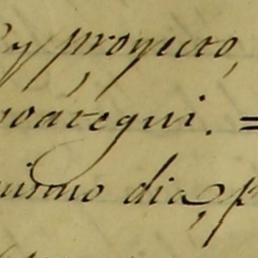 y proyecto,
oategui. =
mismo dia, p